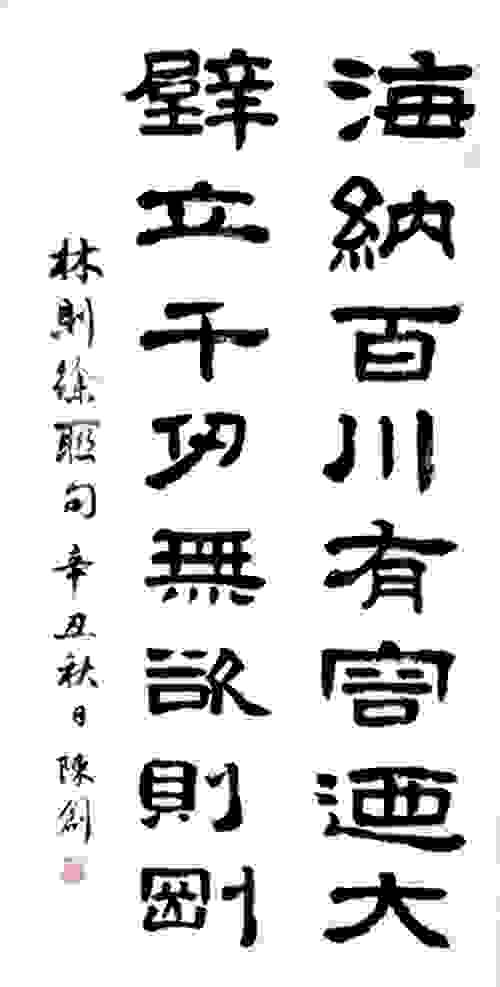 海納百川有容迺大
壁立千仞無欲則剛
林則徐聯句 辛丑秋日 陳創